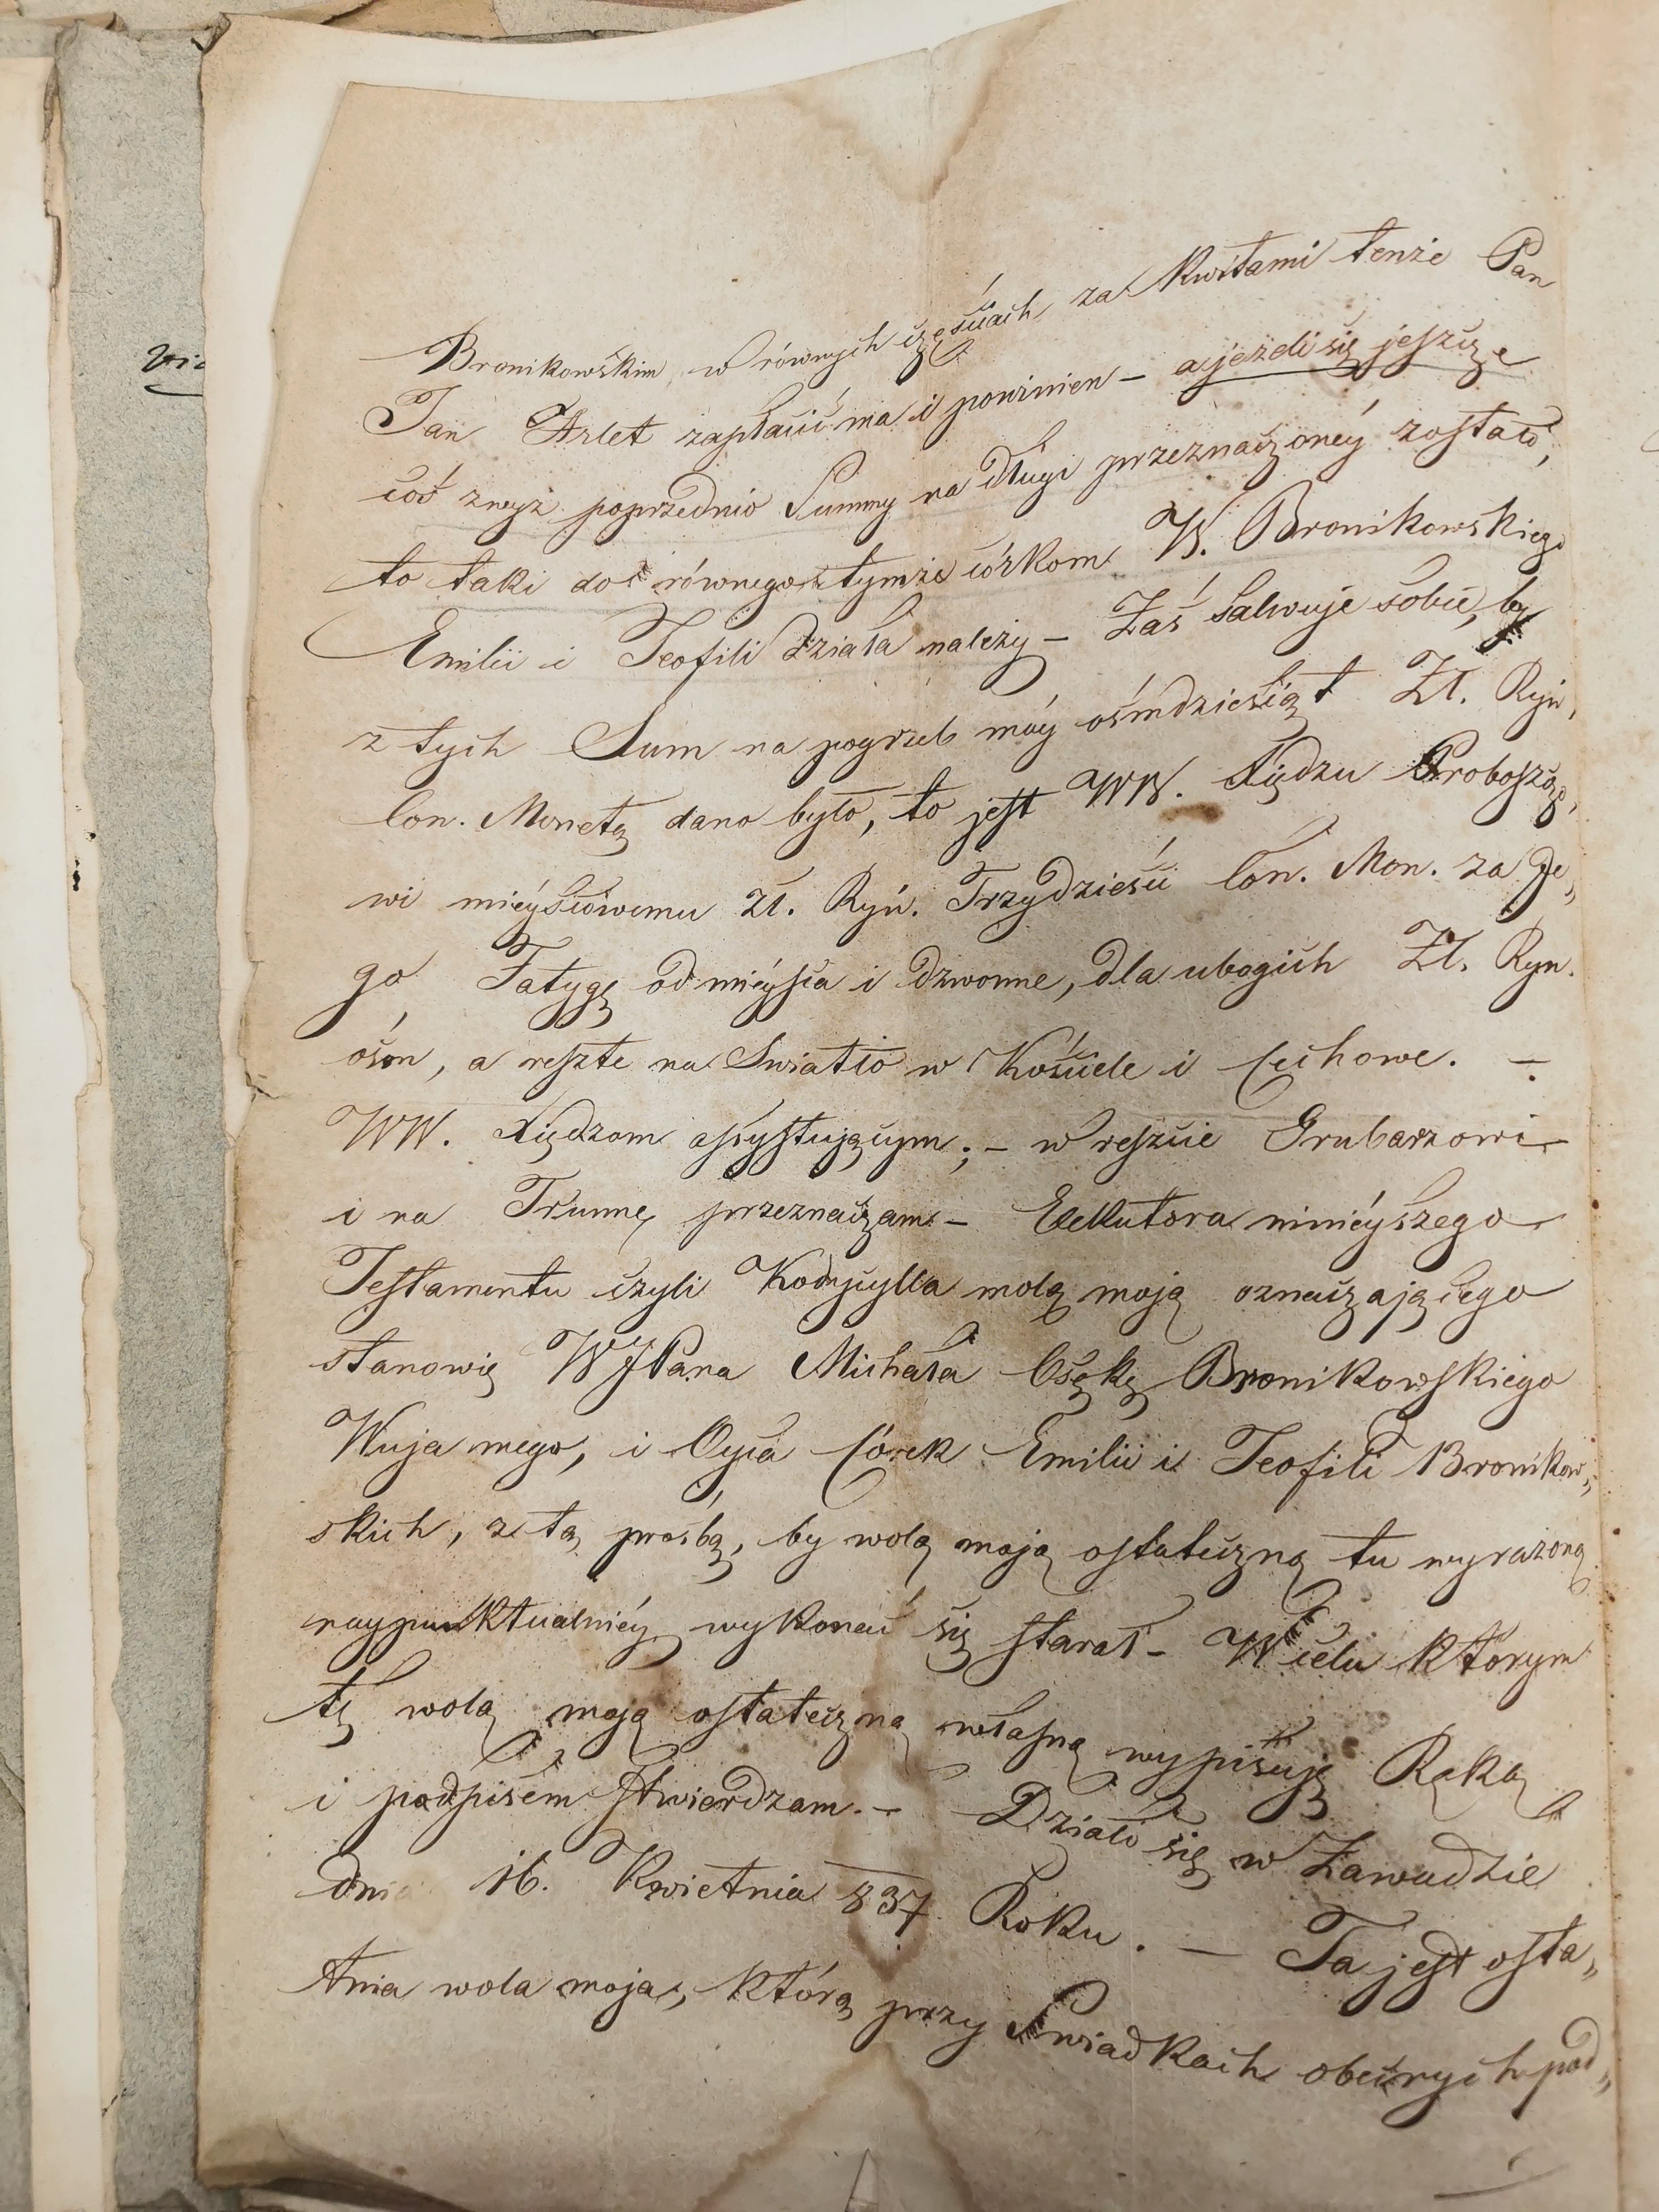 Bronikowskim w równych częściach za Kwitami tenże Pan
Jan Arlet zapłacić ma i powinien – a jeżeli się jeszcze
coś zwyż poprzednio Summy na długi przeznaczonéy zostało,
to taki do równego tymże córkom W. Bronikowskiego
Emilii i Teofili działa należy – Zaś salwuje sobie, by
z tych Sum na pogrzeb móy ośmdziesiąt Zł. Ryń.
Con. Monetą dano było, to jest WW. Xiędzu Proboszczo,
wi mieyscowemu Zł. Ryń. Trzydzieści Con. Mon. za Je„
go Fatygę od mieysca i dzwonne, dla ubogich Zł. Ryn.
ośm, a reszte na Swiatło w Kościele i Cechowe. –
WW. Xiędzom assystującym; – w reszcie Grubarzowi
i na Trumnę przeznaczam – Exekutora ninieyszego
Testamentu czyli Kodycylla wolą moją oznaczającego
stanowię WJPana Michała Osękę Bronikowskiego
Wuja mego, i Oyca Córek Emilii i Teofili Bronikow„
skich, z tą prośbą, by wolą moją ostateczną tu wyrażoną
naypunktualniéy wykonać się starał – W celu którym
tę wolą moją ostateczną własną wypisuję Ręką
i podpisem stwierdzam. – Działo się w Zawadzie
dnia 16. Kwietnia 837 Roku. – Ta jest osta„
tnia wola moja, którą przy Swiadkach obecnych pod„